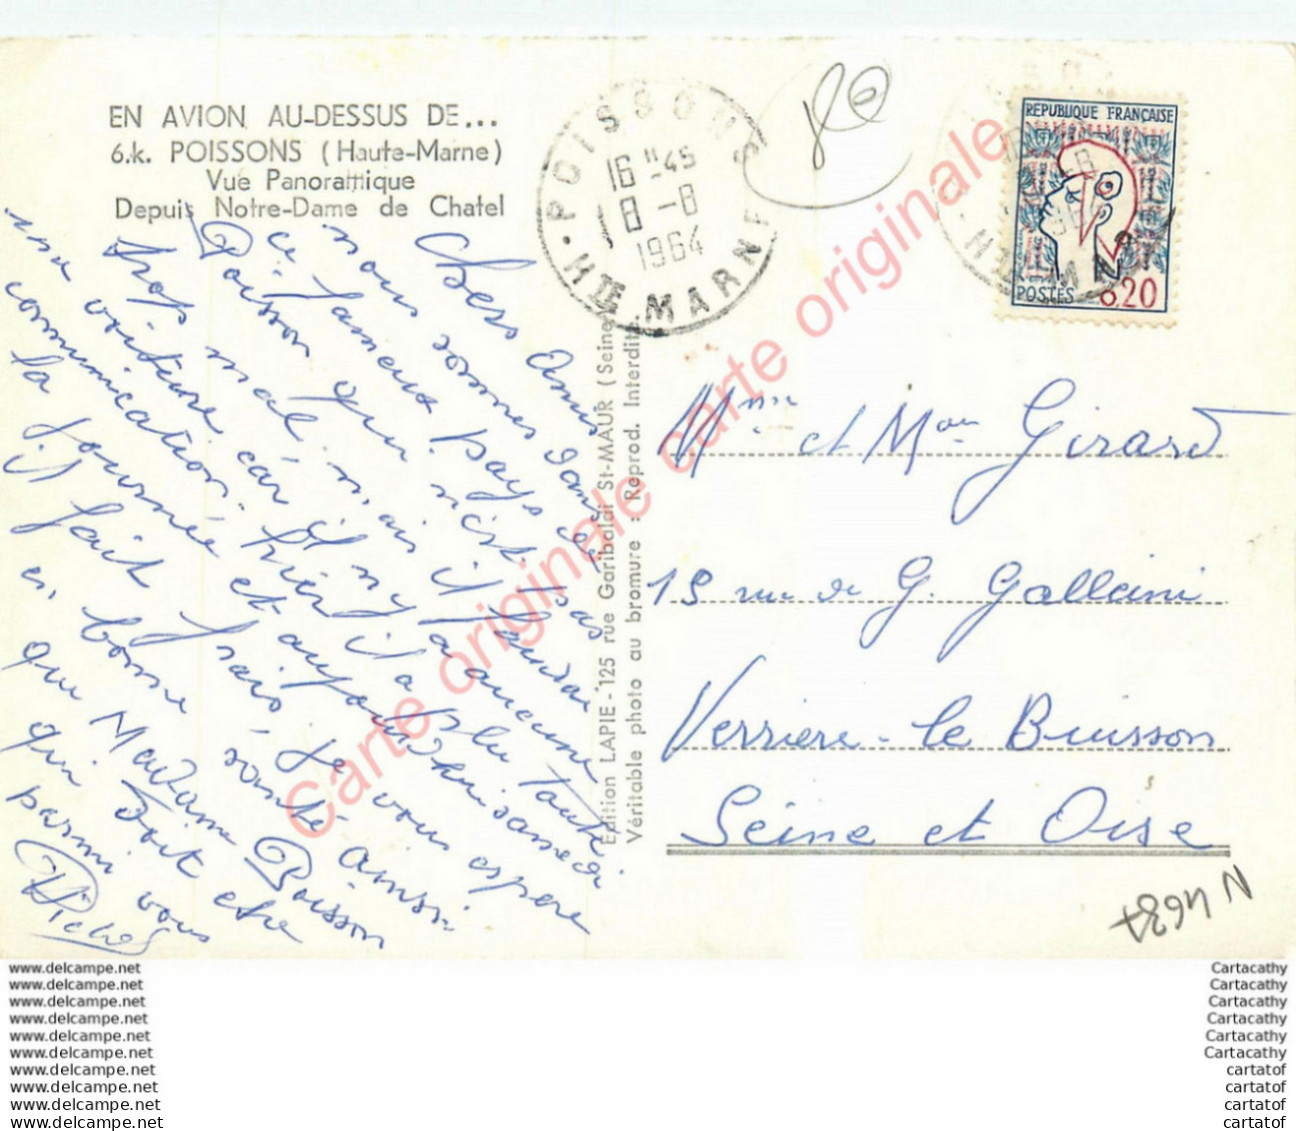 EN AVION AU-DESSUS DE...
6.k. POISSONS (Haute-Marne)
Vue Panoramique
Depuis Notre-Dame de Chatel
Chers Amis
nous sommes dans
ce fameux pays de
Poisson qui n'est pas
trop mal, mais il faudrai
une voiture car il n'y a aucune
communication. hier il a plu toute
la journée et aujourd'hui samedi
il fait frais, je vous espère
en bonne santé ainsi
que Madame Poisson
qui doit être
parmi vous
POISSONS
16 H 45
8 - 8
1964
HTE MARNE
REPUBLIQUE FRANÇAISE
POSTES 0.20
Mme et Mon Girard
19 rue de G. Gallieni
Verriere-le Buisson
Seine et Oise
Edition LAPIE - 125 rue Garibaldi St-MAUR (Seine)
Véritable photo au bromure : Reprod. Interdite
Carte originale carte originale
N 4637
www.delcampe.net
www.delcampe.net
www.delcampe.net
www.delcampe.net
www.delcampe.net
www.delcampe.net
www.delcampe.net
www.delcampe.net
www.delcampe.net
www.delcampe.net
Cartacathy
Cartacathy
Cartacathy
Cartacathy
Cartacathy
Cartacathy
cartatof
cartatof
cartatof
cartatof